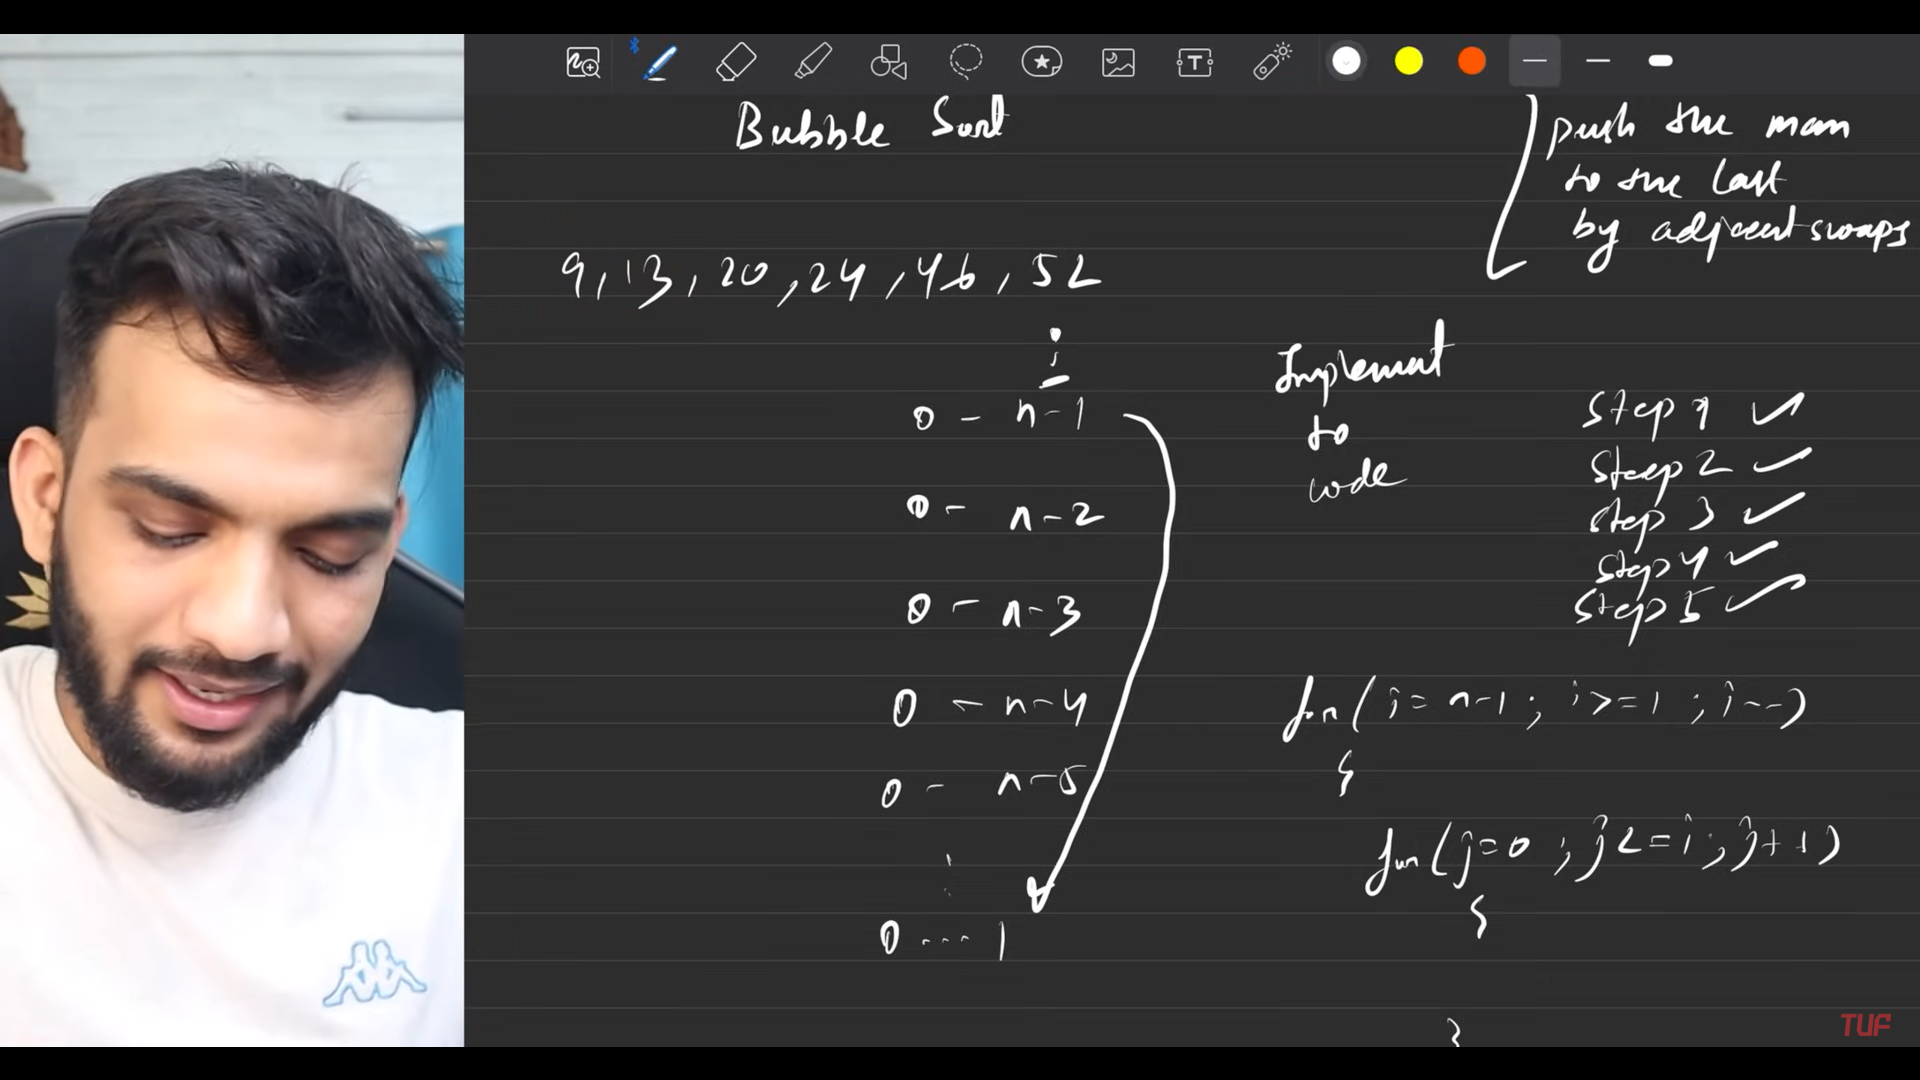 Bubble Sort
push the max
to the last
by adjacent swaps
9, 13, 20, 24, 46, 52
i
0 - n-1
0 - n-2
0 - n-3
0 - n-4
0 - n-5
0 --- 1
Implement
to
code
Step 1 ✓
Steep 2 ✓
Step 3 ✓
Step 4 ✓
Step 5 ✓
for( i = n-1 ; i >= 1 ; i-- )
{
for( j=0 ; j <= i ; j++ )
{
}
T
TUF